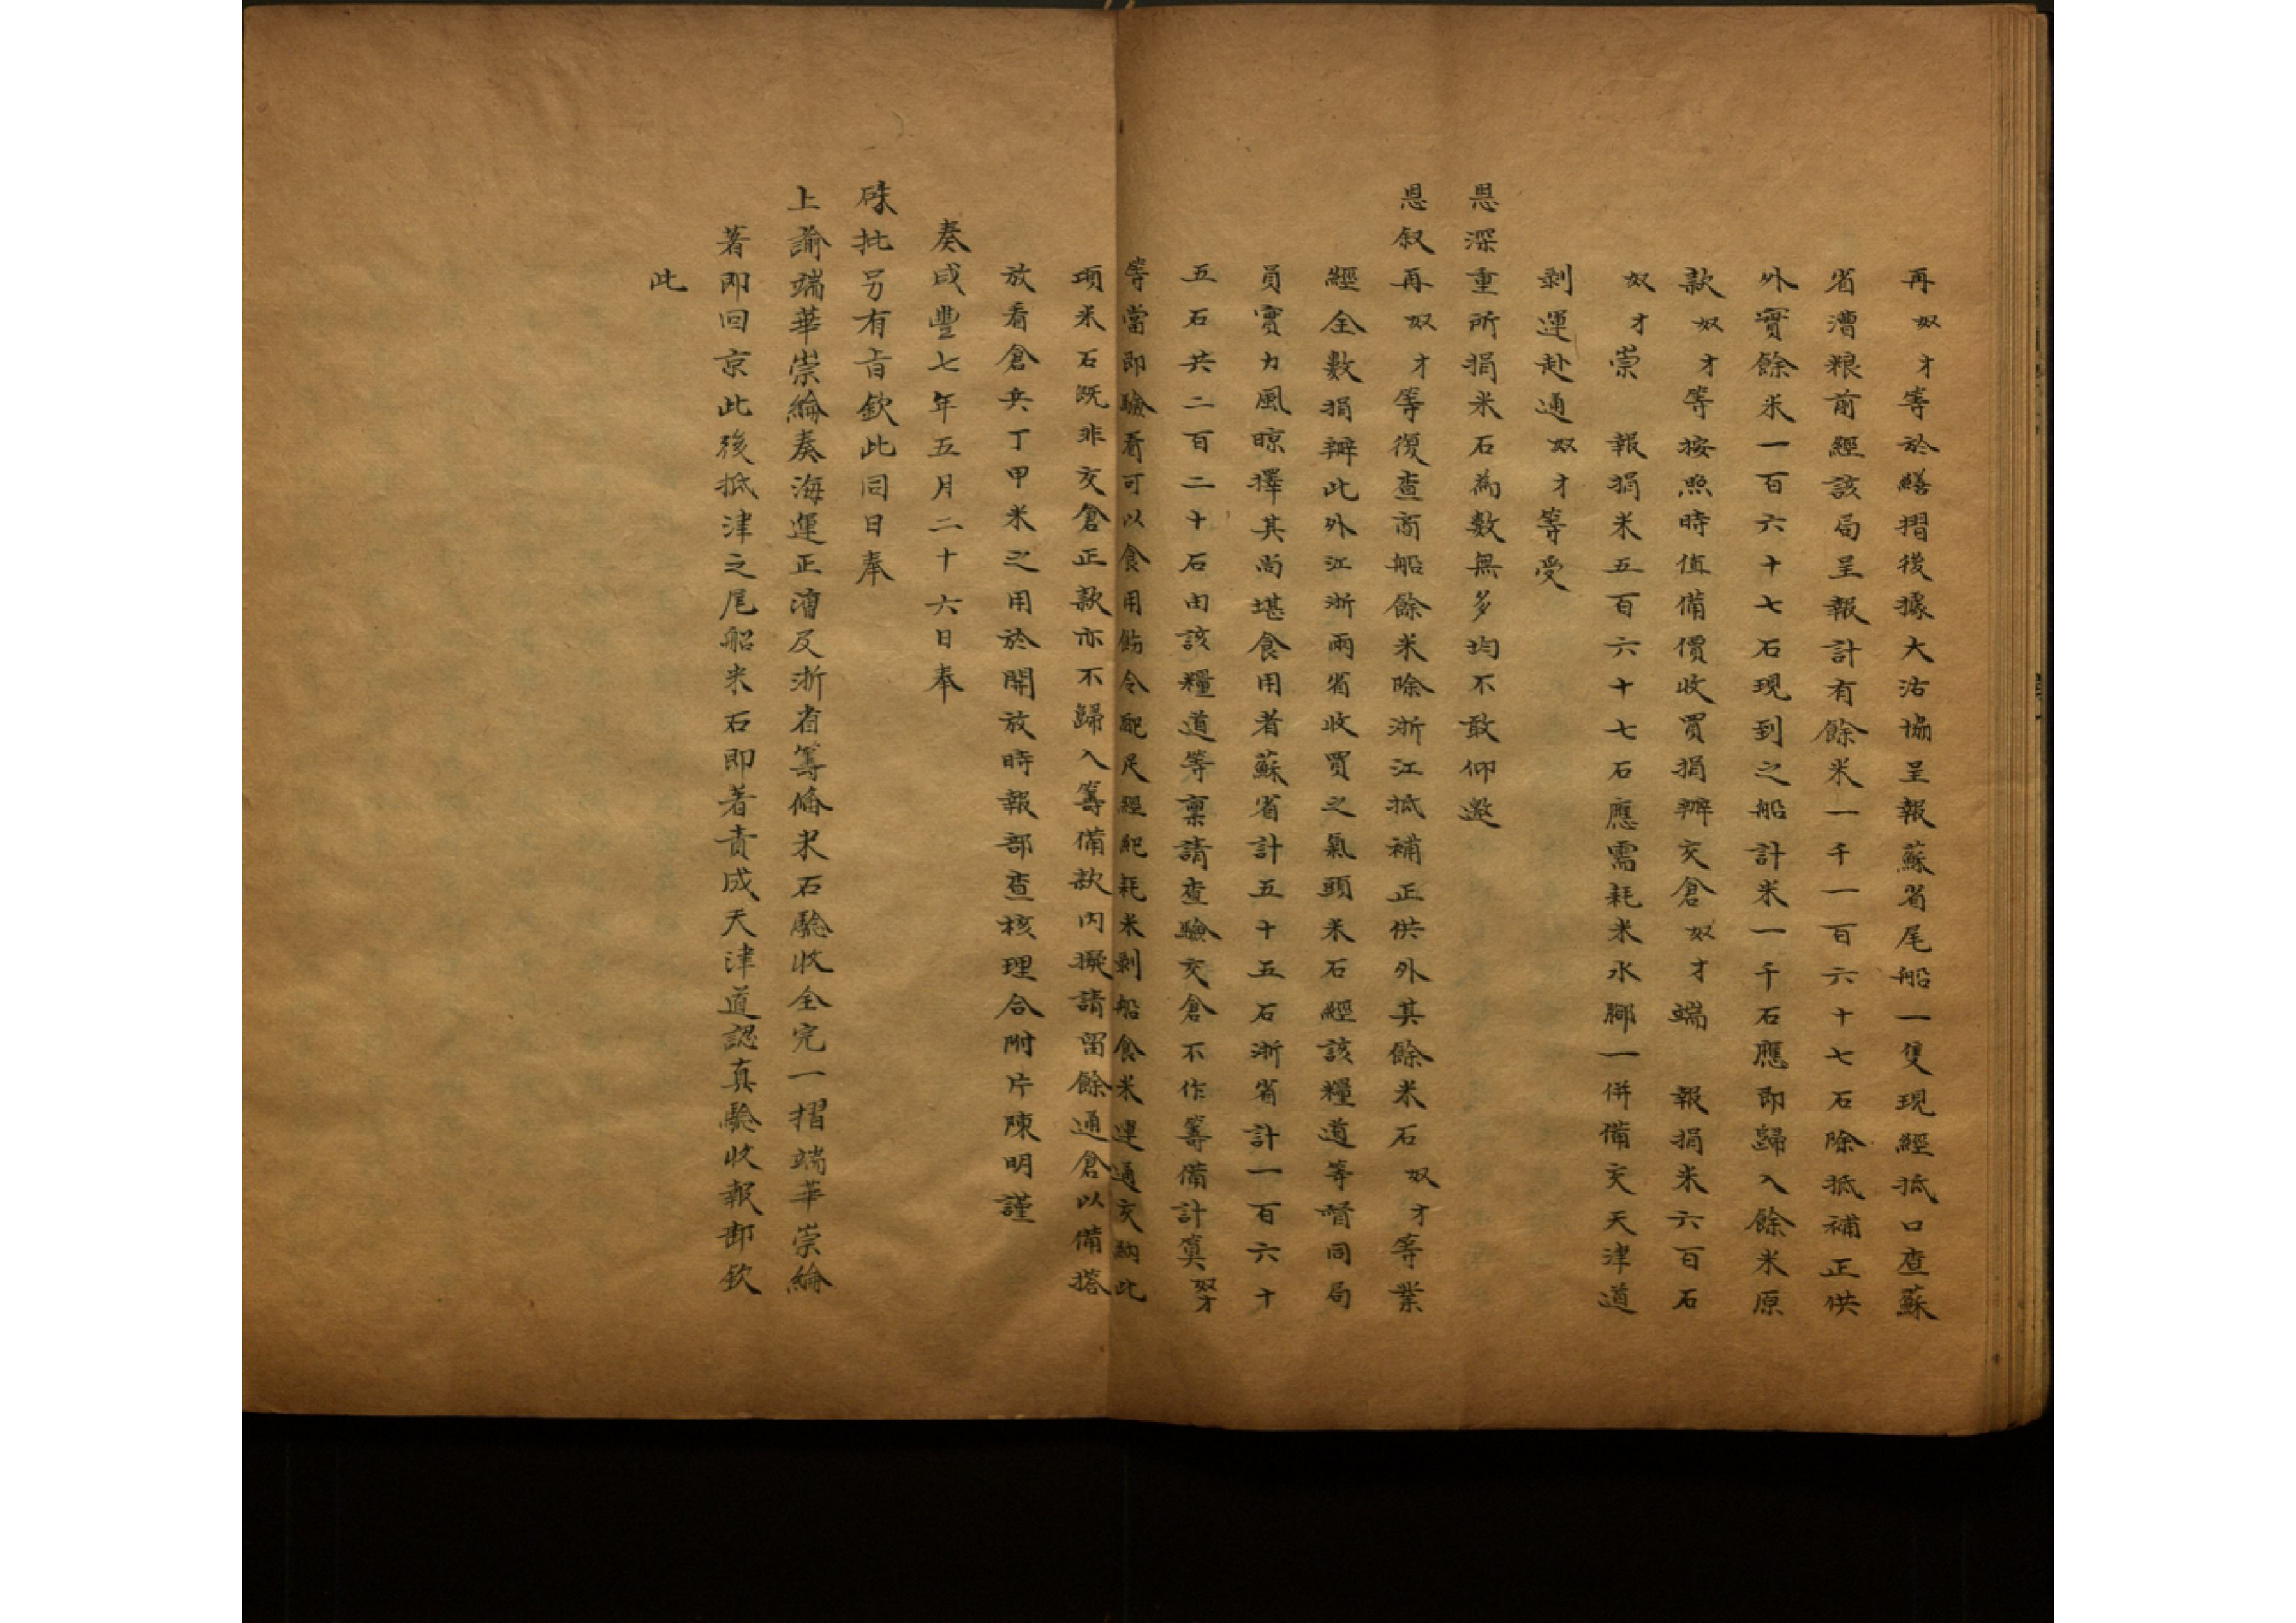 再奴才等於繕摺後據大沽協呈報蘇省尾船一隻現經抵口查蘇
省漕粮前經該局呈報計有餘米一千一百六十七石除抵補正供
外實餘米一百六十七石現到之船計米一千石應即歸入餘米原
款奴才等按照時值備價收買捐辦交倉奴才端 報捐米六百石
奴才崇 報捐米五百六十七石應需耗米水腳一併備交天津道
剥運赴通奴才等受
恩深重所捐米石為數無多均不敢仰邀
恩叙再奴才等復查商船餘米除浙江抵補正供外其餘米石奴才等業
經全數捐辦此外江浙兩省收買之氣頭米石經該糧道等督同局
員實力風晾擇其尚堪食用者蘇省計五十五石浙省計一百六十
五石共二百二十石由該糧道等稟請查驗交倉不作籌備計算奴才
等當即驗看可以食用飭令配足經紀耗米剥船食米運通交納此
項米石既非交倉正款亦不歸入籌備款內擬請留餘通倉以備搭
放看倉兵丁甲米之用於開放時報部查核理合附片陳明謹
奏咸豐七年五月二十六日奉
硃批另有旨欽此同日奉
上諭端華崇綸奏海運正漕及浙省籌俻米石驗收全完一摺端華崇綸
著即回京此後抵津之尾船米石即著責成天津道認真驗收報部欽
此